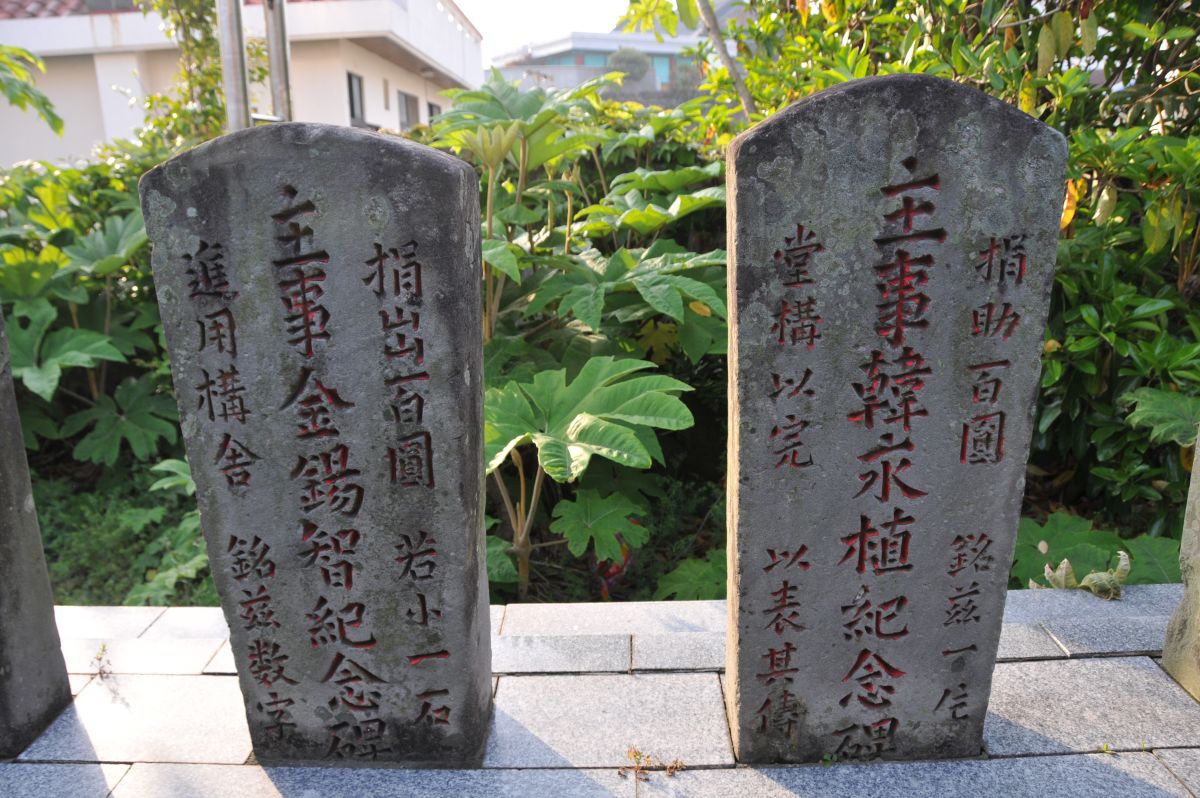 捐出一百圓 若小一石
主事金錫智紀念碑
進用構舍 銘玆數字
捐助一百圓 銘玆一
主事韓永植紀念碑
堂構以完 以表其傳